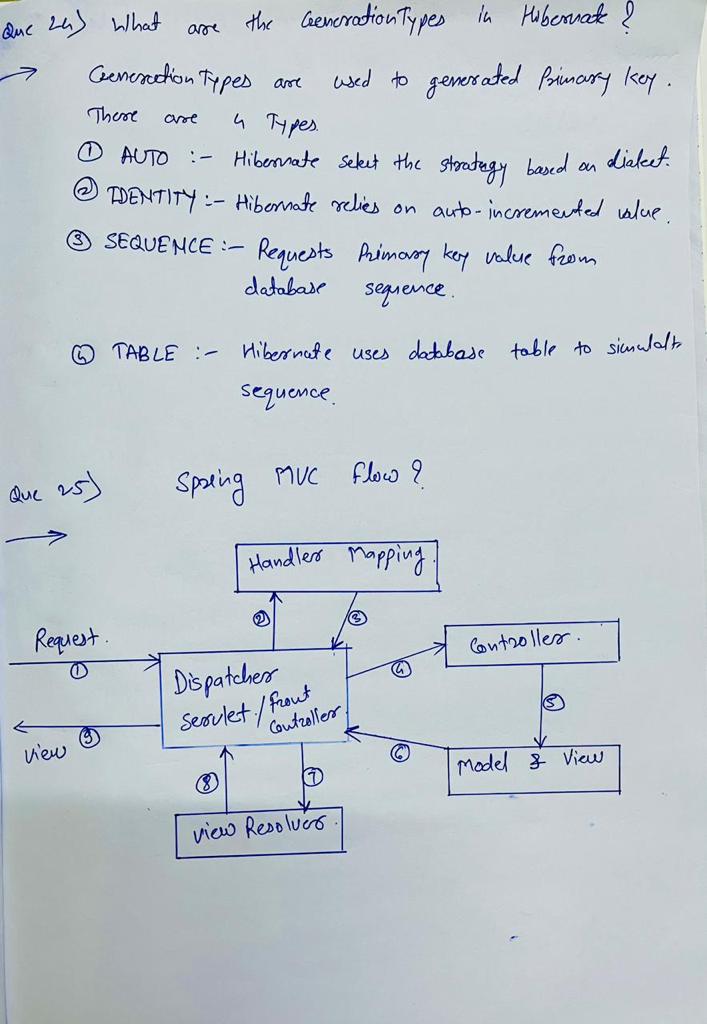 Que 24) What are the GenerationTypes in Hibernate ?
Generation Types are used to generated Primary Key.
There are 4 Types.
① AUTO :- Hibernate Select the strategy based on dialect.
② IDENTITY :- Hibernate relies on auto-incremented value.
③ SEQUENCE :- Requests Primary key value from
database sequence.
④ TABLE :- Hibernate uses database table to simulate
sequence.
Que 25) Spring MVC flow ?
Handler Mapping.
② ③
Request.
①
Controller.
④
Dispatcher
Servlet / Front
Controller
⑤
View ⑨
⑥
Model & View
⑧ ⑦
View Resolver.